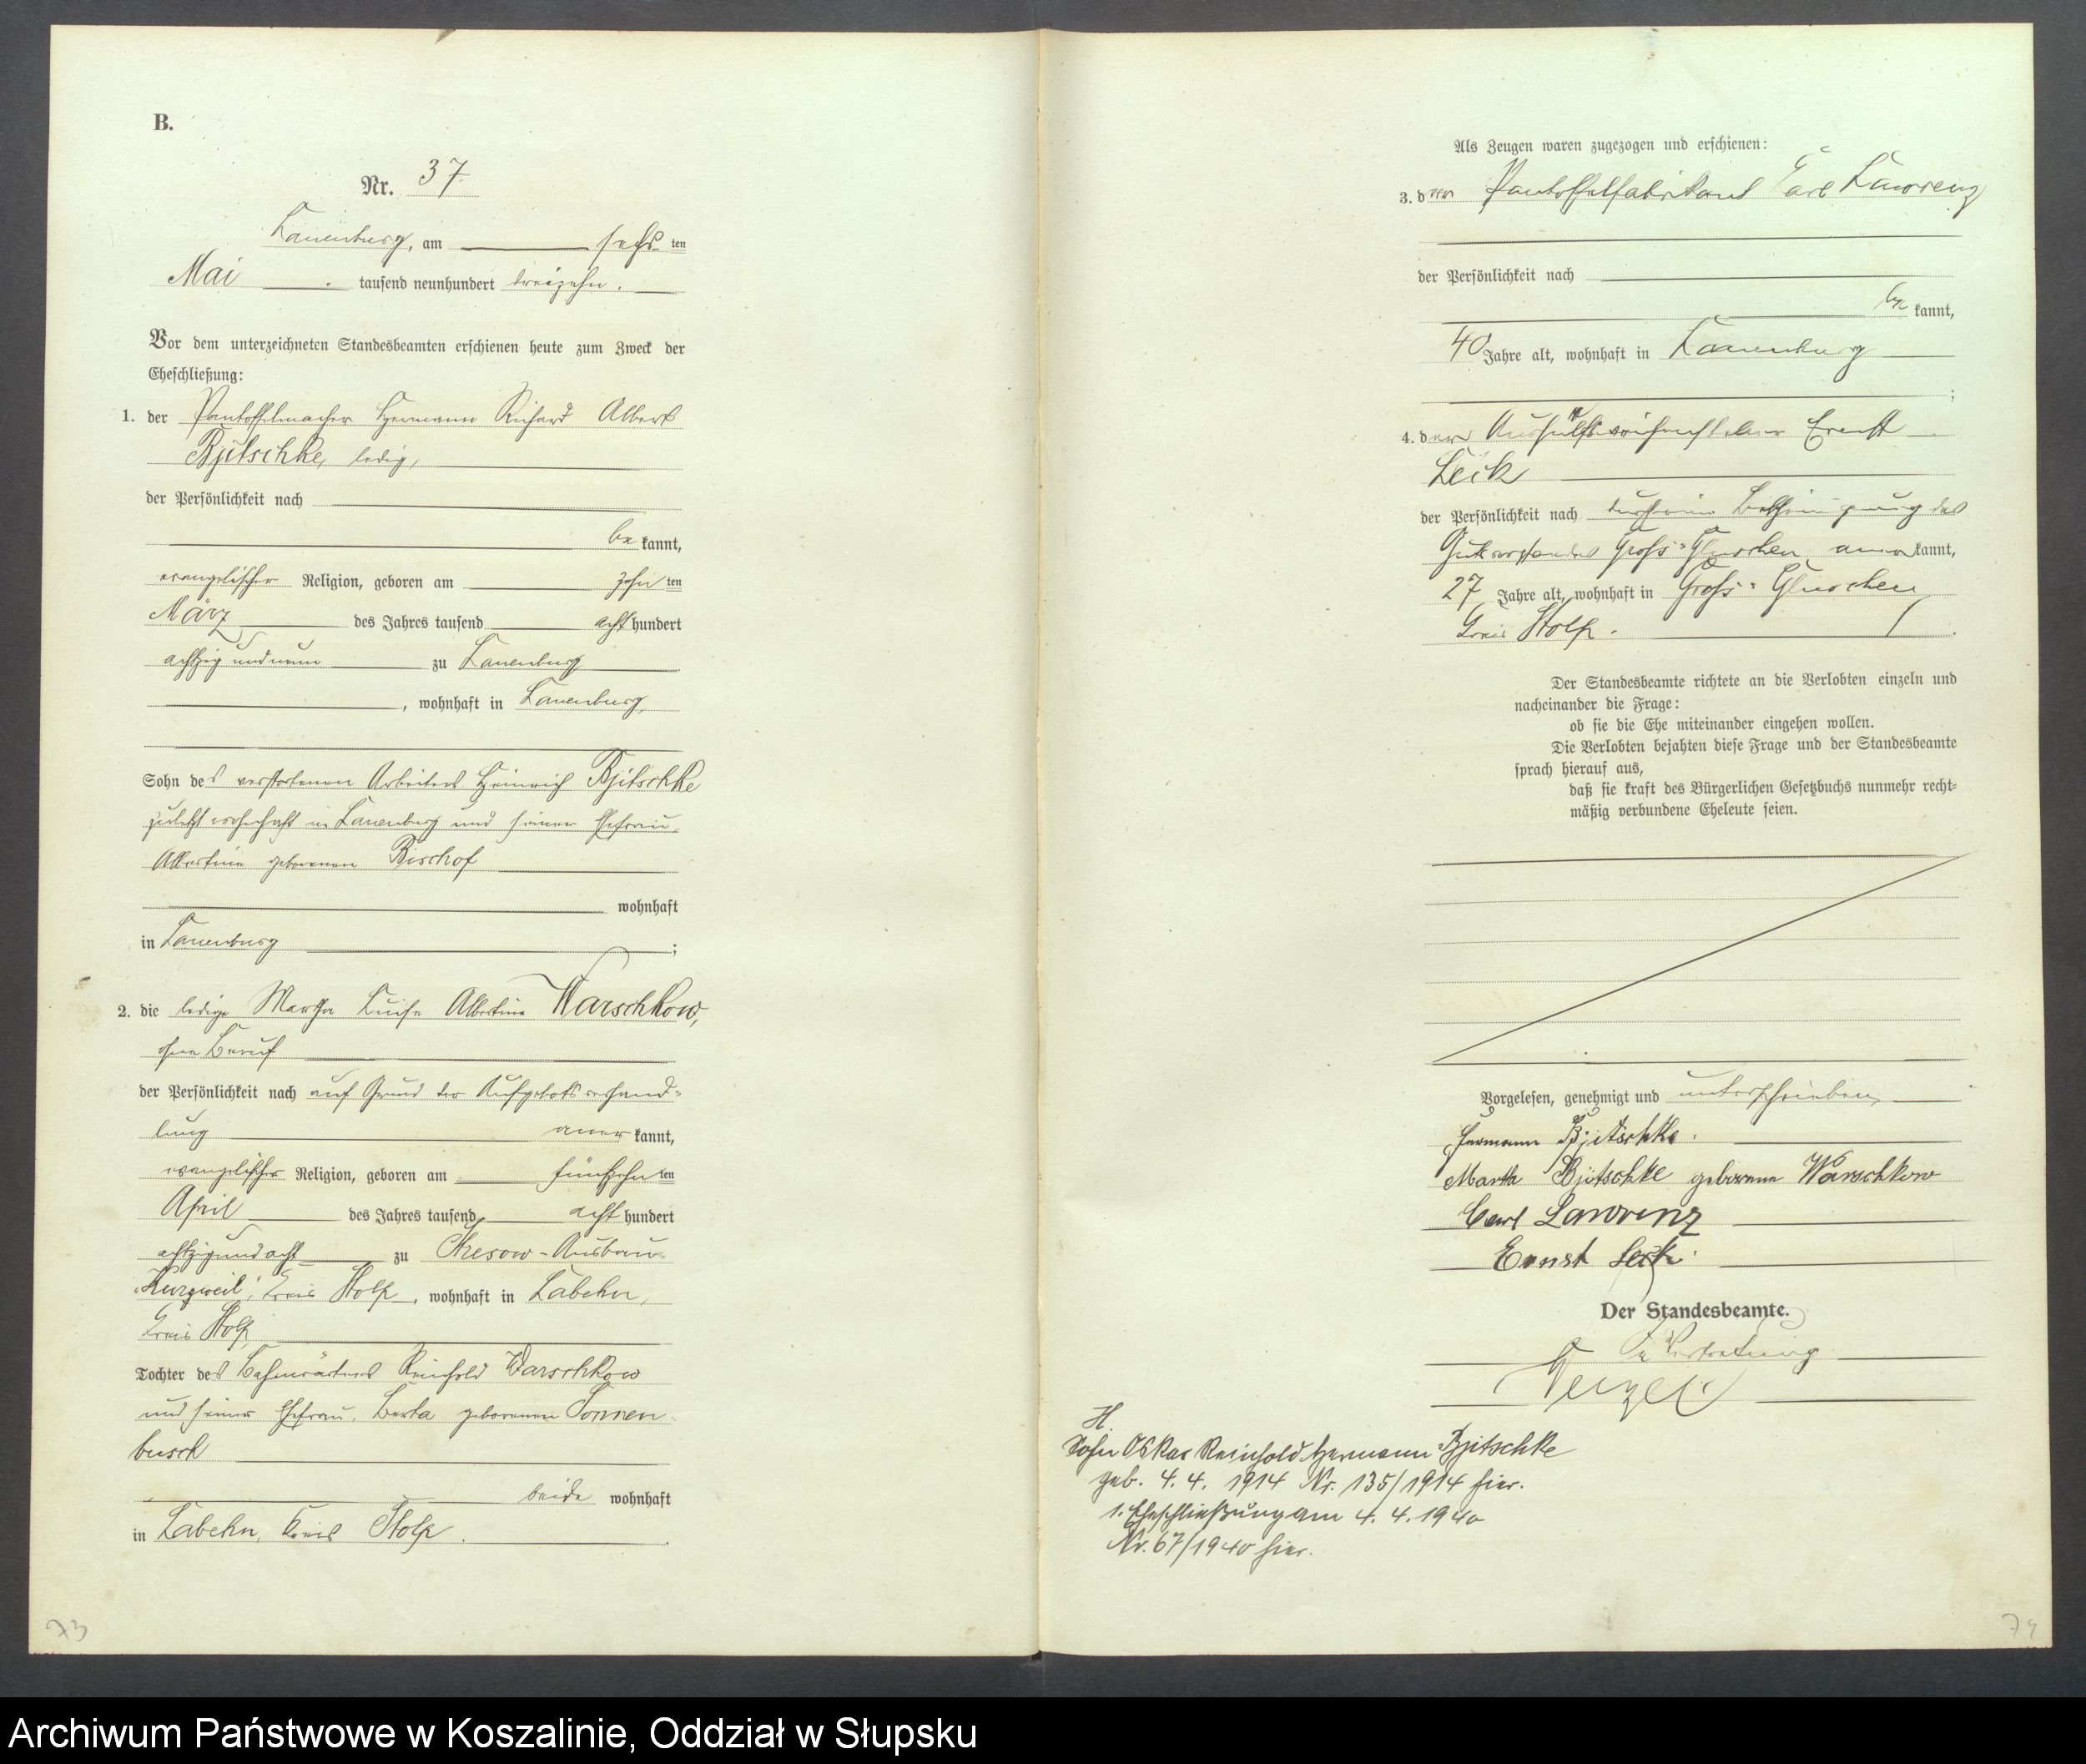 B.
Nr. 37
Lauenburg, am sechsten
Mai tausend neunhundert dreizehn.
Vor dem unterzeichneten Standesbeamten erschienen heute zum Zweck der
Eheschließung:
1. der Pantoffelmacher Hermann Richard Albert
Bjitschke, ledig,
der Persönlichkeit nach
bekannt,
evangelischer Religion, geboren am zehnten
März des Jahres tausend achthundert
achtzig und neun zu Lauenburg
, wohnhaft in Lauenburg,
Sohn des verstorbenen Arbeiters Heinrich Bjitschke
zuletzt wohnhaft in Lauenburg und seiner Ehefrau
Albertine geborenen Bischof
wohnhaft
in Lauenburg ;
2. die ledige Martha Luise Albertine Warschkow,
ohne Beruf
der Persönlichkeit nach auf Grund der Aufgebotsverhand-
lung anerkannt,
evangelischer Religion, geboren am fünfzehnten
April des Jahres tausend achthundert
achtzigundacht zu Stresow-Ausbau
"Kurzweil", Kreis Stolp, wohnhaft in Labehn,
Kreis Stolp,
Tochter des Bahnwärters Reinhold Warschkow
und seiner Ehefrau, Berta geborenen Sonnen-
busch
beide wohnhaft
in Labehn, Kreis Stolp.
73
Als Zeugen waren zugezogen und erschienen:
3. der Pantoffelfabrikant Carl Lawrenz
der Persönlichkeit nach
bekannt,
40 Jahre alt, wohnhaft in Lauenburg
;
4. der Ernst
Leik
der Persönlichkeit nach durch eine Bescheinigung des
Gutsvorstandes Groß-Gluschen anerkannt,
27 Jahre alt, wohnhaft in Groß-Gluschen
Kreis Stolp.
Der Standesbeamte richtete an die Verlobten einzeln und
nacheinander die Frage:
ob sie die Ehe miteinander eingehen wollen.
Die Verlobten bejahten diese Frage und der Standesbeamte
sprach hierauf aus,
daß sie kraft des Bürgerlichen Gesetzbuchs nunmehr recht-
mäßig verbundene Eheleute seien.
Vorgelesen, genehmigt und unterschrieben
Hermann Bjitschke.
Marta Bjitschke geborene Warschkow
Carl Lawrenz
Ernst Leik
Der Standesbeamte.
In Vertretung
H.
Sohn Oskar Reinhold Hermann Bjitschke
geb. 4. 4. 1914 Nr. 135/1914 hier.
1. Eheschließung am 4. 4. 1940
Nr. 67/1940 hier.
74
Archiwum Państwowe w Koszalinie, Oddział w Słupsku